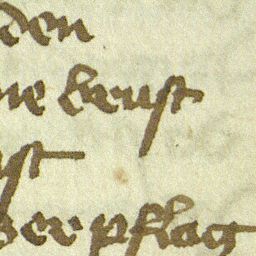 den
ne brust
st
der pflag